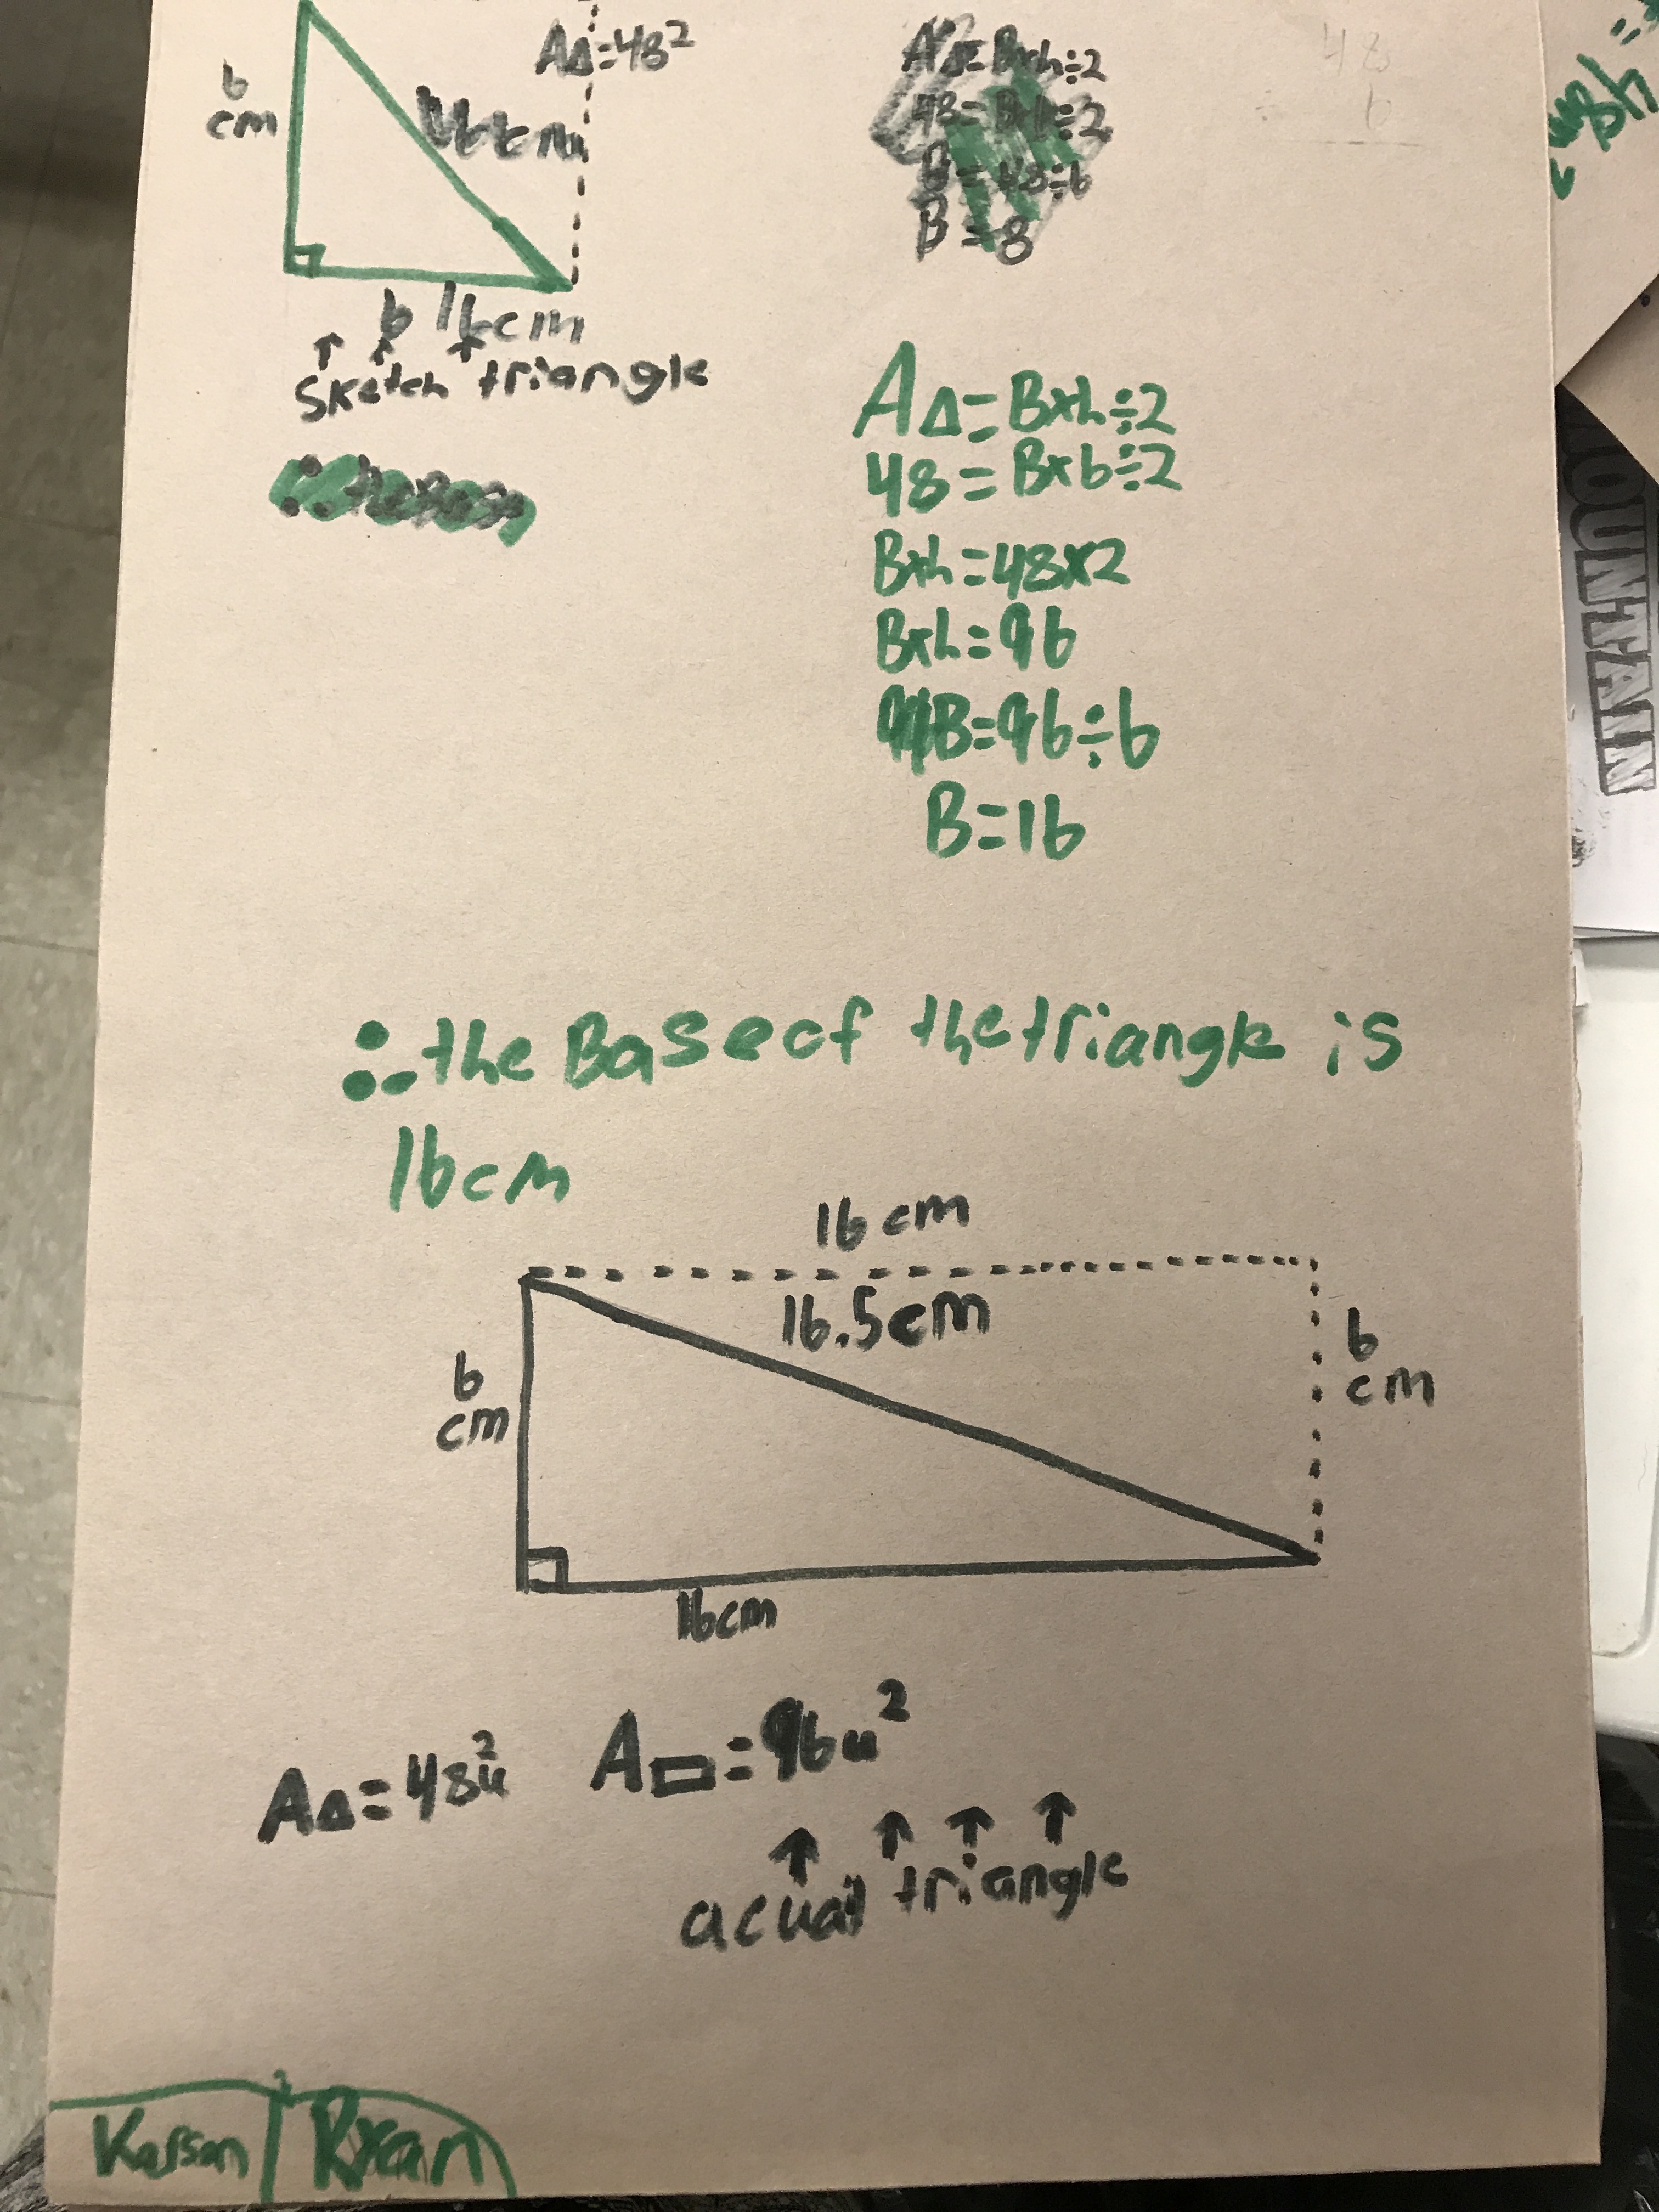 6
cm
A△=48²
b 16cm
sketch triangle
A△=B×h÷2
48=B×h÷2
B=48÷6
B=8
48
6
A△=B×h÷2
48=B×6÷2
B×h=48×2
B×h=96
B=96÷6
B=16
∴ the Base of the triangle is
16cm
16 cm
16.5cm
6
cm
6
cm
16cm
A△=48u² A▭=96u²
acual triangle
Karson Ryan
OUNTAIN